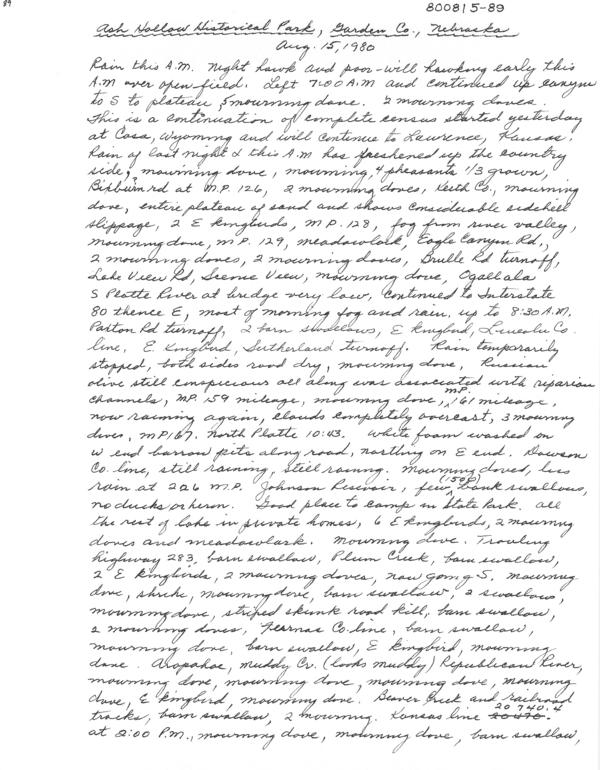 89
800815-89
Ash Hollow Historical Park, Garden Co., Nebraska
Aug. 15, 1980
Rain this A.M. Night hawk and poor-will hawking early this
A.M over open field. Left 7:00 A.M and continued up canyon
to S to plateau, mourning dove. 2 mourning doves.
This is a continuation of complete census started yesterday
at Casa, Wyoming and will continue to Lawrence, Kansas.
Rain of last night & this A.M has freshened up the country
side, mourning dove, mourning, 4 pheasants 1/3 grown,
rd at M.P. 126, 2 mourning doves, Keith Co., mourning
dove, entire plateau of sand and shows considerable sidehill
slippage, 2 E kingbirds, M.P. 128, fog from river valley,
mourning dove, M.P. 129, meadowlark, Eagle Canyon Rd.,
2 mourning doves, 2 mourning doves, Brulle Rd turnoff,
Lake View Rd, Scenic View, mourning dove, Ogallala
S Platte River at bridge very low, continued to Interstate
80 thence E, most of morning fog and rain, up to 8:30 A.M.
Paxton Rd turnoff, 2 barn swallows, E kingbird, Lincoln Co.
line, E. Kingbird, Sutherland turnoff. Rain temporarily
stopped, both sides road dry, mourning dove, Russian
olive still conspicuous all along was associated with riparian
channels, M.P. 159 mileage, mourning dove, M.P. 161 mileage,
now raining again, clouds completely overcast, 3 mourning
doves, MP167. North Platte 10:43. White foam washed on
W end barrow pits along road, nothing on E end. Dawson
Co. line, still raining, still raining. Mourning doved, less
rain at 226 M.P. Johnson Resivoir, few (150+) bank swallows,
no ducks or heron. Good place to camp in State Park. All
the rest of lake in private homes, 6 E kingbirds, 2 mourning
doves and meadowlark. Mourning dove. Traveling
highway 283, barn swallow, Plum Creek, barn swallow,
2 E kingbirds, 2 mourning doves, now going S. Mourning
dove, shrike, mourning dove, barn swallow, 2 swallows,
mourning dove, striped skunk road kill, barn swallow,
2 mourning doves, Furnas Co. line, barn swallow,
mourning dove, barn swallow, E kingbird, mourning
dove. Arapahoe, Muddy Cr. (looks muddy) Republican River,
mourning dove, mourning dove, mourning dove, mourning
dove, E kingbird, mourning dove. Beaver Creek and railroad
tracks, barn swallow, 2 mourning. Kansas line 20 740.4
at 2:00 P.M., mourning dove, mourning dove, barn swallow,